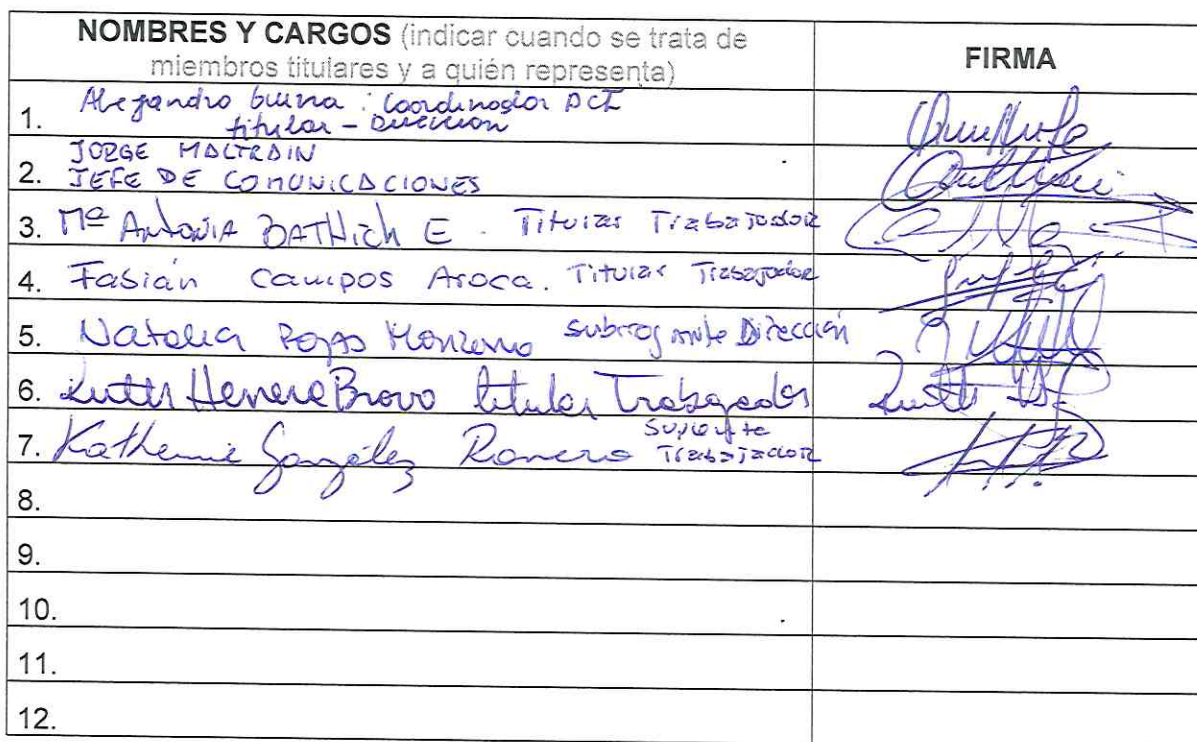 NOMBRES Y CARGOS (indicar cuando se trata de
miembros titulares y a quién representa)
FIRMA
1. Alejandro : Coordinador DCI
titular - Dirección
2. JORGE MALTRAIN
JEFE DE COMUNICACIONES
3. Mª Antonia BATHICH E. Titular Trabajador
4. Fabián Campos Aroca. Titular Trabajador
5. Natalia Rojas Subrogante Dirección
6. Ruth Herrera Bravo titular Trabajador Ruth
7. Katherine González Romero Suplente
Trabajador
8.
9.
10.
11.
12.